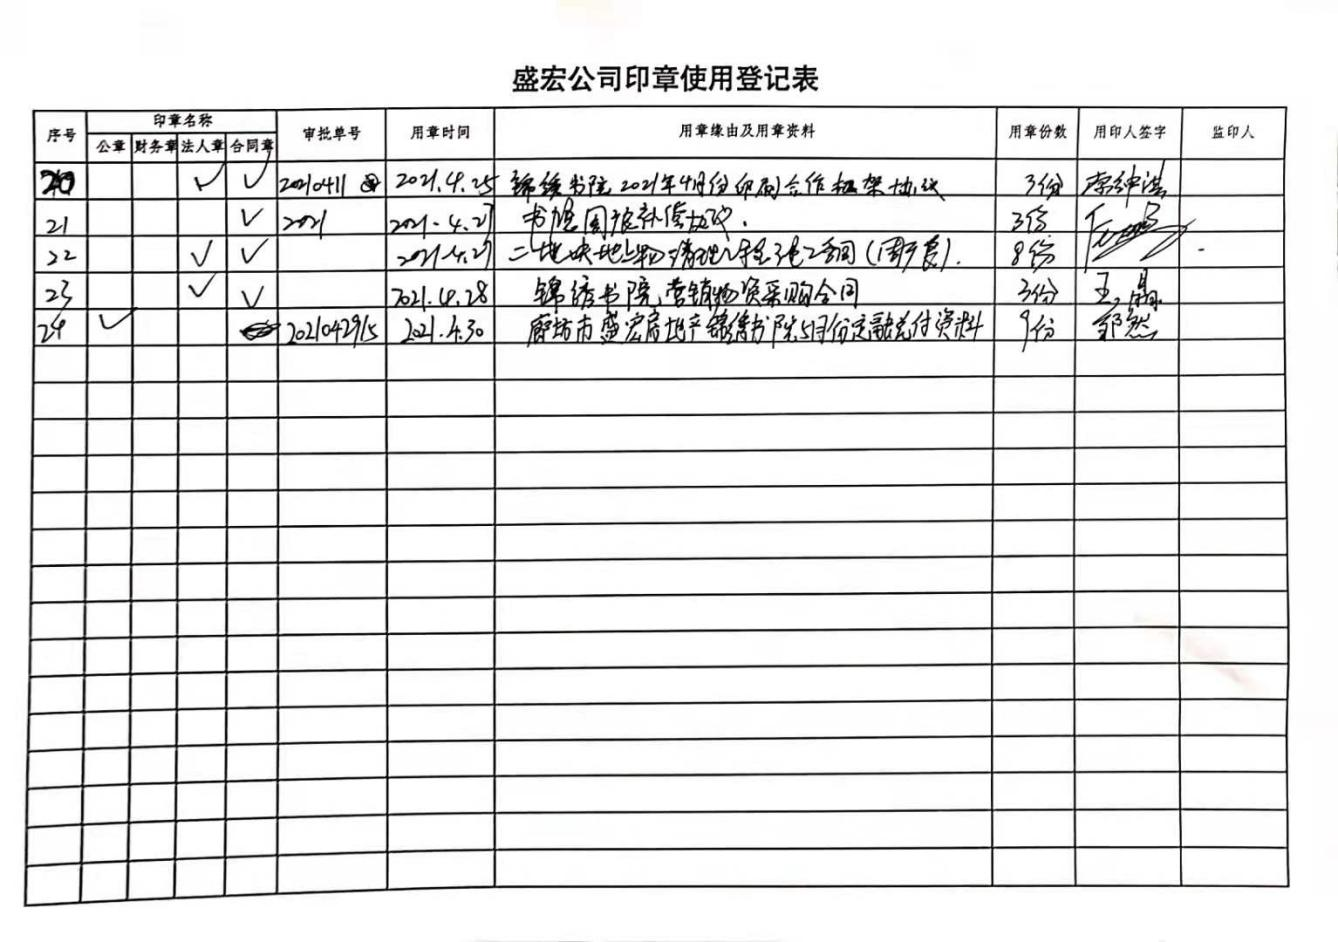 盛宏公司印章使用登记表
序号 印章名称 审批单号 用章时间 用章缘由及用章资料 用章份数 用印人签字 监印人
公章 财务章 法人章 合同章
20 ✓ ✓ 20210411 2021.4.25 锦绣书院2021年4月份印刷合作框架协议 3份
21 ✓ 2021 2021.4.27 书院 补偿协议. 3份
22 ✓ ✓ 2021.4.27 二地块地上物清理 合同 8份
23 ✓ ✓ 2021.4.28 锦绣书院营销物资采购合同 3份 王晶
24 ✓ 2021042915 2021.4.30 廊坊市盛宏房地产锦绣书院5月份定融兑付资料 9份 郭然